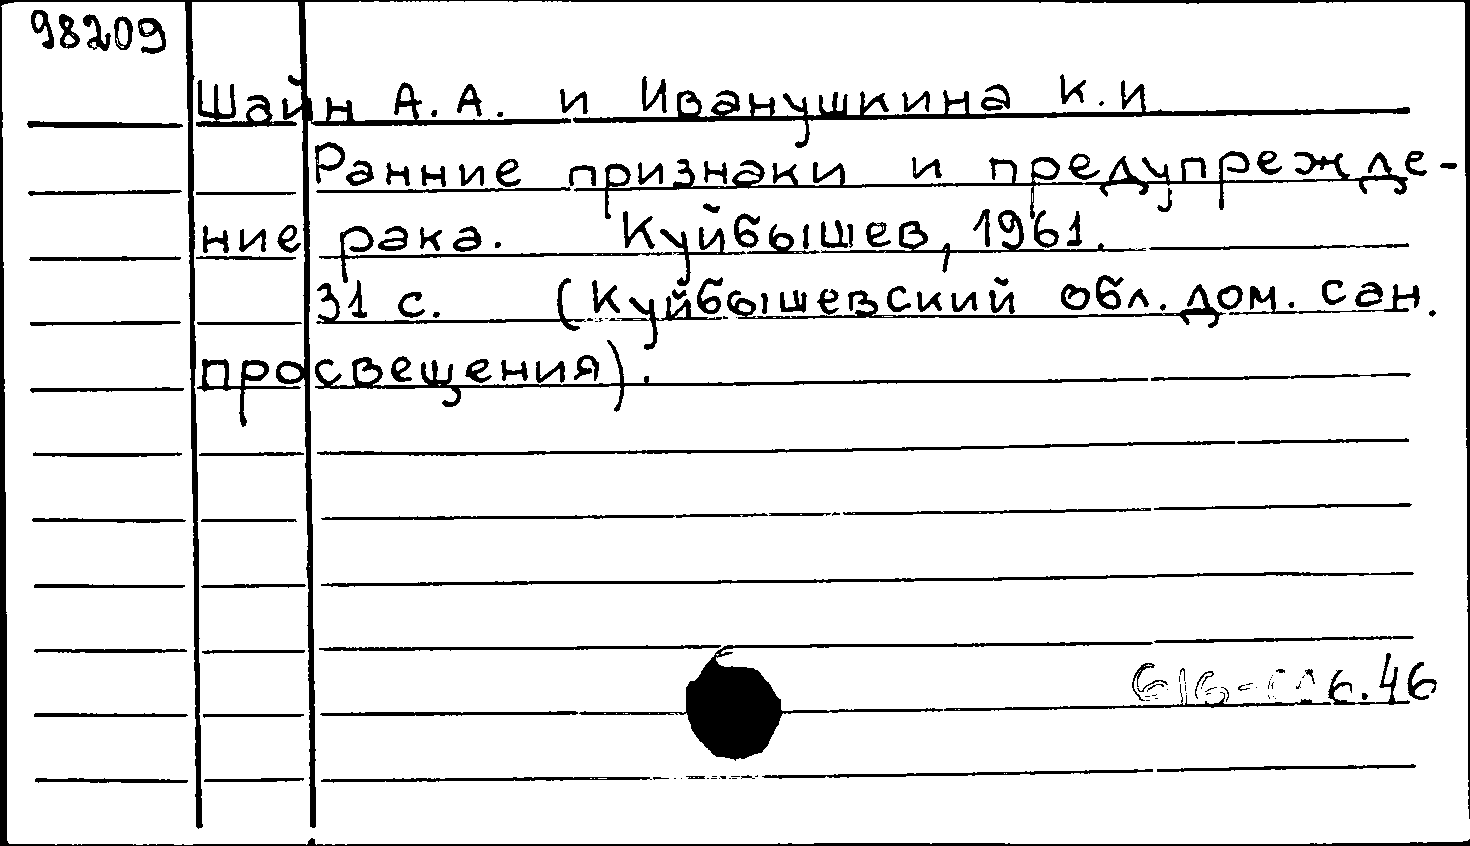 98209
Шайн А.А. и Иванушкина К.И
Ранние признаки и предупрежде-
ние рака. Куйбышев, 1961.
31 с. (Куйбышевский обл. дом. сан.
просвещения).